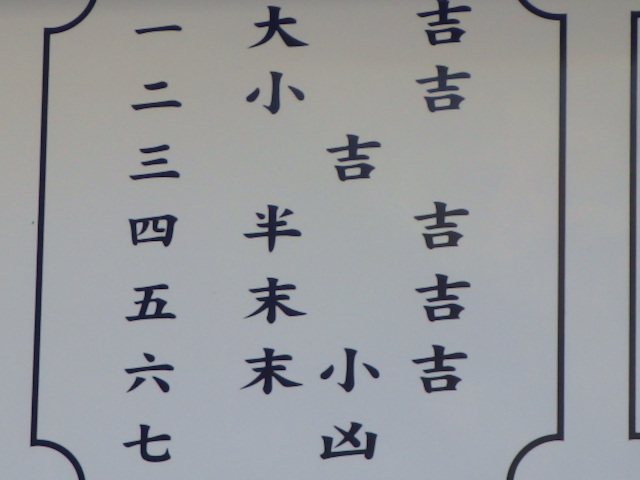 一 大吉
二 小吉
三 吉
四 半吉
五 末吉
六 末小吉
七 凶